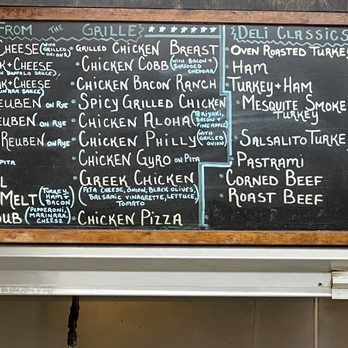 FROM THE GRILLE
CHEESE (WITH GRILLED ONIONS)
K+CHEESE
BUFFALO SAUCE)
K+CHEESE
SAUCE)
EUBEN ON RYE
EUBEN ON RYE
REUBEN ON RYE
PITA
L
MELT (TURKEY, HAM + BACON)
UB (PEPPERONI, MARINARA, CHEESE)
• GRILLED CHICKEN BREAST
• CHICKEN COBB (WITH BACON + SHREDDED CHEDDAR)
• CHICKEN BACON RANCH
• SPICY GRILLED CHICKEN
• CHICKEN ALOHA (TERIYAKI, BACON + PINEAPPLE)
• CHICKEN PHILLY (WITH GRILLED ONION)
• CHICKEN GYRO ON PITA
• GREEK CHICKEN
(FETA CHEESE, ONION, BLACK OLIVES, BALSAMIC VINAGRETTE, LETTUCE, TOMATO)
• CHICKEN PIZZA
DELI CLASSICS
OVEN ROASTED TURKE
HAM
TURKEY + HAM
• MESQUITE SMOKE
TURKEY
• SALSALITO TURKE
• PASTRAMI
CORNED BEEF
ROAST BEEF